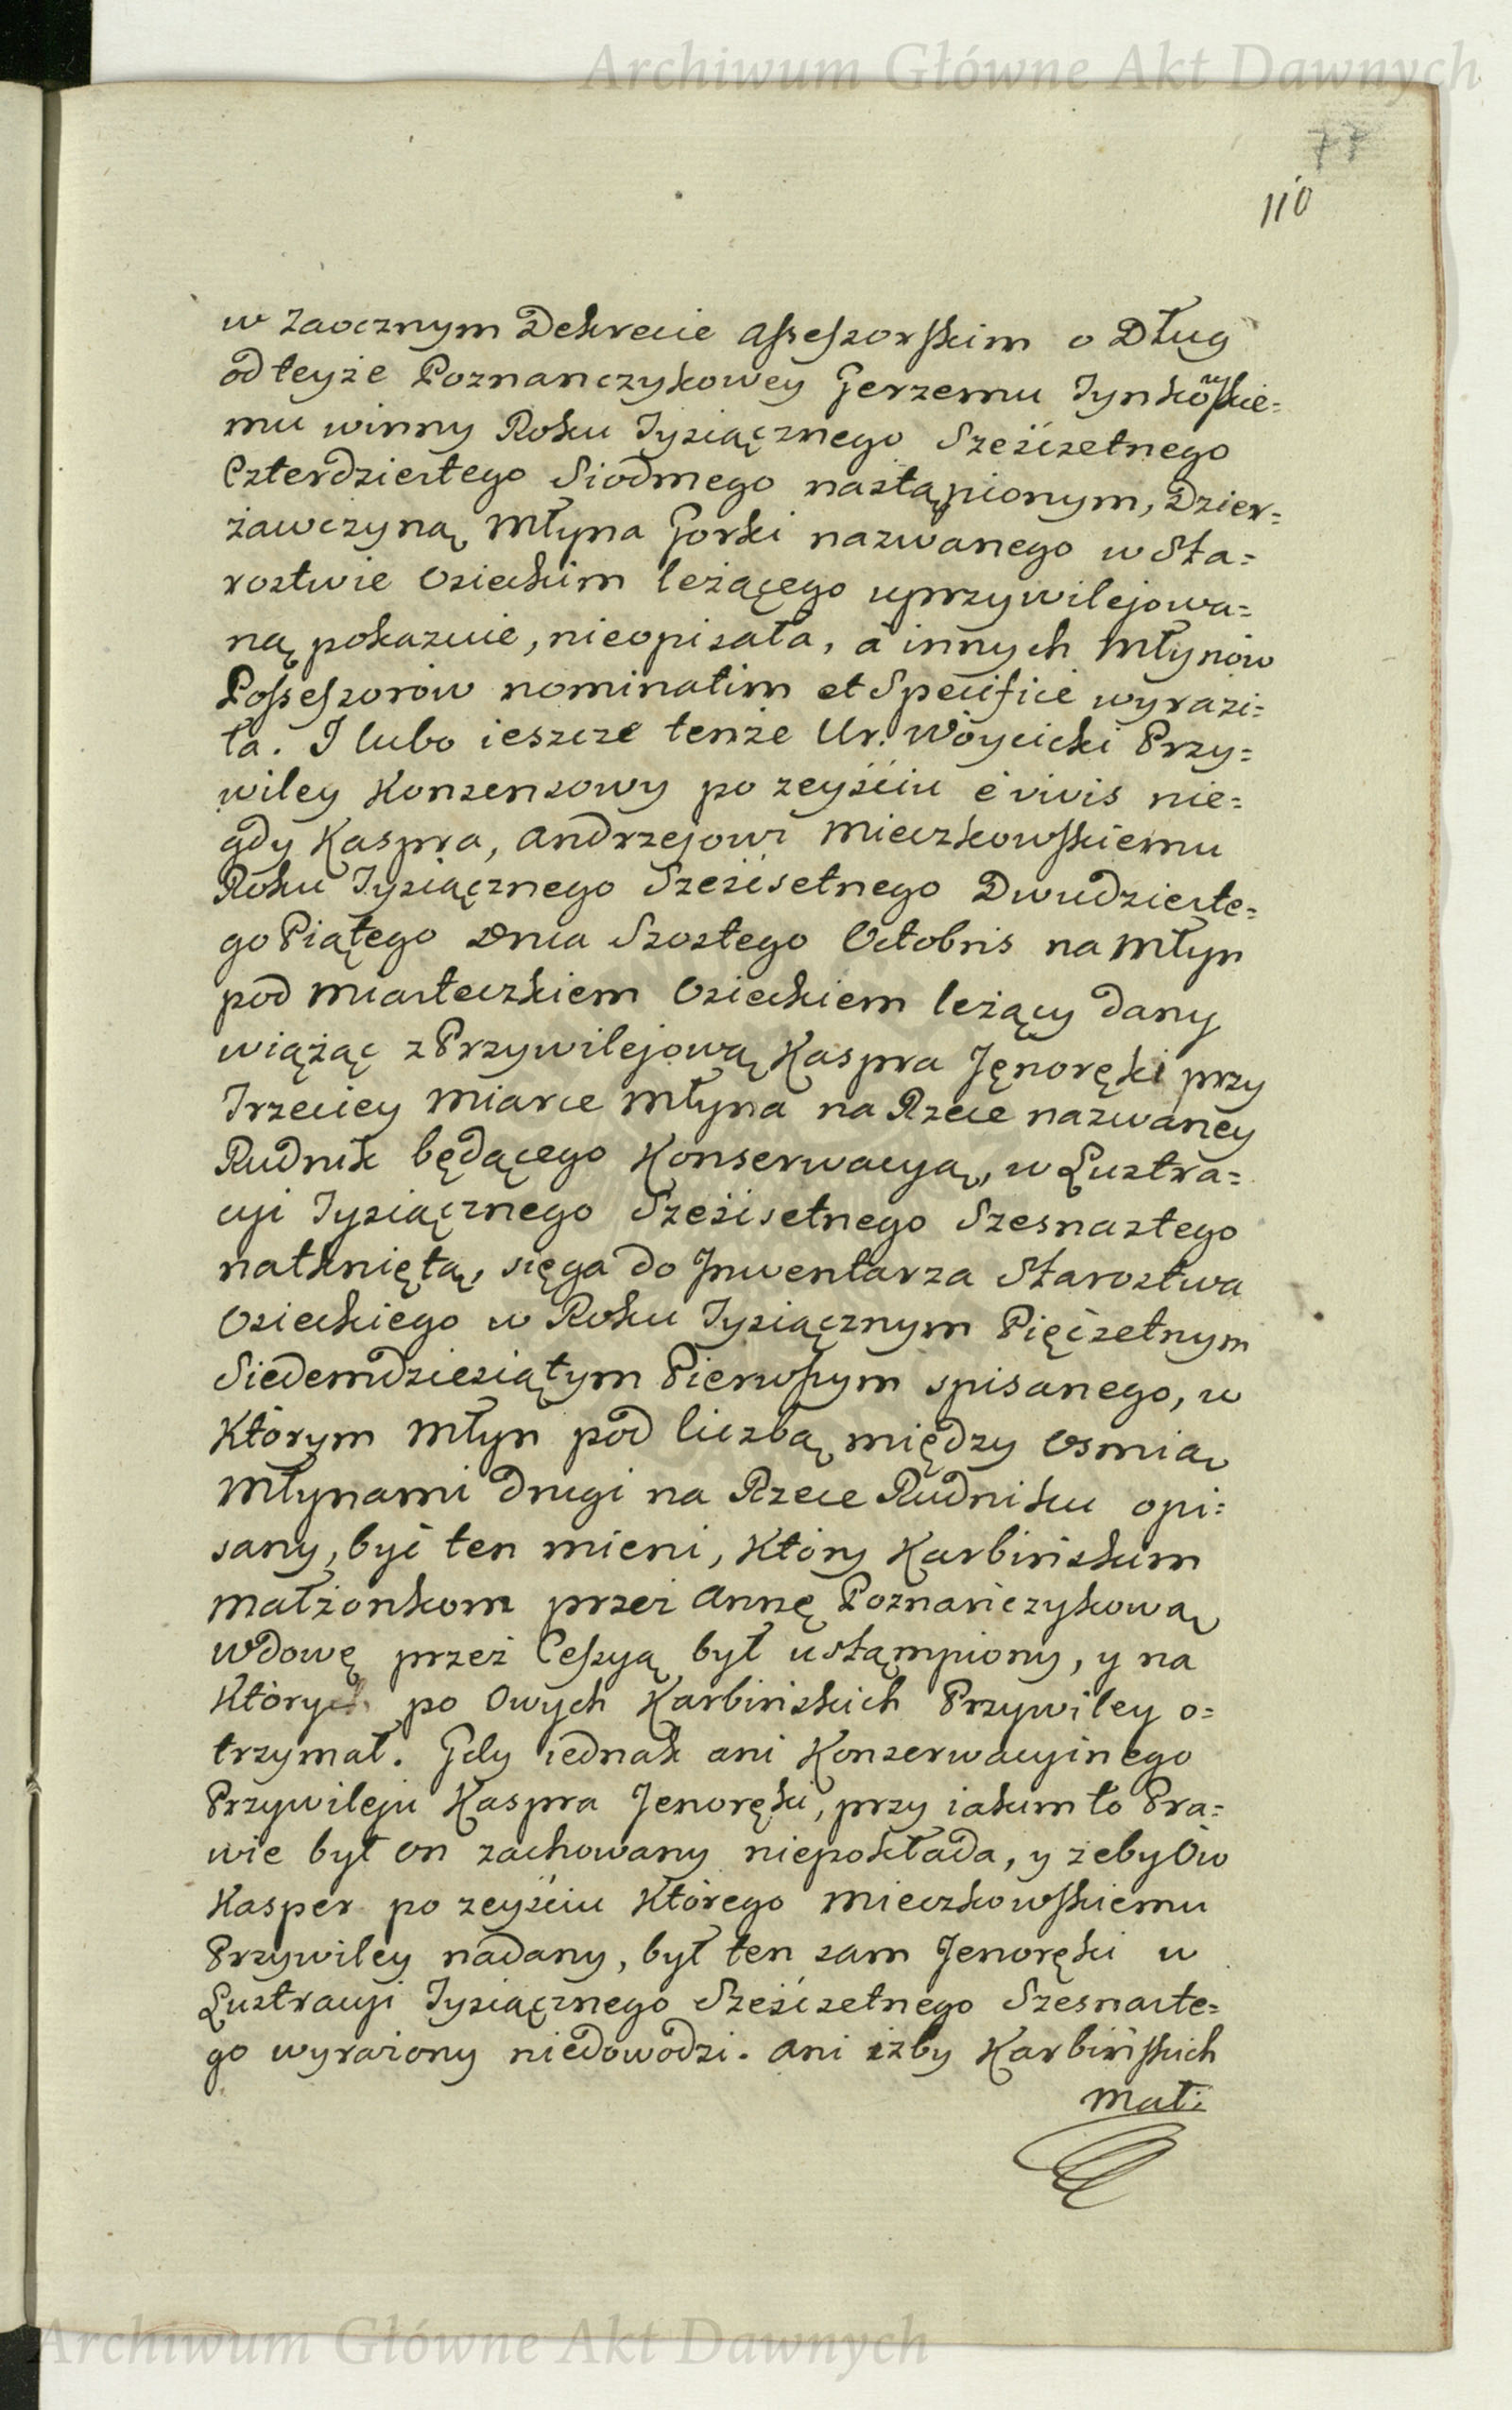 Archiwum Główne Akt Dawnych
77
110
w zaocznym Dekrecie Assessorskim o Dług
od teyże Poznanczykowey Jerzemu Tynkowskie=
mu winny Roku Tysiącznego Sześćsetnego
Czterdziestego Siodmego nastąpionym, Dzier=
żawczyną Młyna Gorki nazwanego w Sta=
rostwie Osieckim leżącego uprzywilejowa=
ną pokazuie, nieopisała, a innych Młynów
Possessorow nominatim et Specifice wyrazi=
ła. I lubo ieszcze tenże Ur. Woycicki Przy=
wiley Konsensowy po zeyściu è vivis nie=
gdy Kaspra, Andrzejowi Mieczkowskiemu
Roku Tysiącznego Sześćsetnego Dwudzieste=
go Piątego Dnia Szostego Octobris na Młyn
pod Miasteczkiem Osieckiem leżący dany
wiążąc z Przywilejową Kaspra Jęnoręki przy
Trzeciey Miarce Młyna na Rzece nazwaney
Rudnik będącego Konserwacyą, w Lustra=
cyi Tysiącznego Sześćsetnego Szesnastego
natkniętą, sięga do Inwentarza Starostwa
Osieckiego w Roku Tysiącznym Pięćsetnym
Siedemdziesiątym Pierwszym spisanego, w
Którym Młyn pod liczbą między Osmią
Młynami drugi na Rzece Rudniku opi=
sany, być ten mieni, Który Karbińskim
Małżonkom przez Annę Poznańczykową
Wdowę przez Cessyą był ustąmpiony, y na
Których po Owych Karbińskich Przywiley o=
trzymał. Gdy iednak ani Konserwacyinego
Przywileju Kaspra Jenoręki, przy iakim to Pra=
wie był on zachowany niepokłada, y zeby Ow
Kasper po zeyściu Którego Mieczkowskiemu
Przywiley nadany, był ten sam Jenoręki w
Lustracyi Tysiącznego Sześćsetnego Szesnaste=
go wyrażony niedowodzi. Ani iżby Karbińskich
Mał:
Archiwum Główne Akt Dawnych